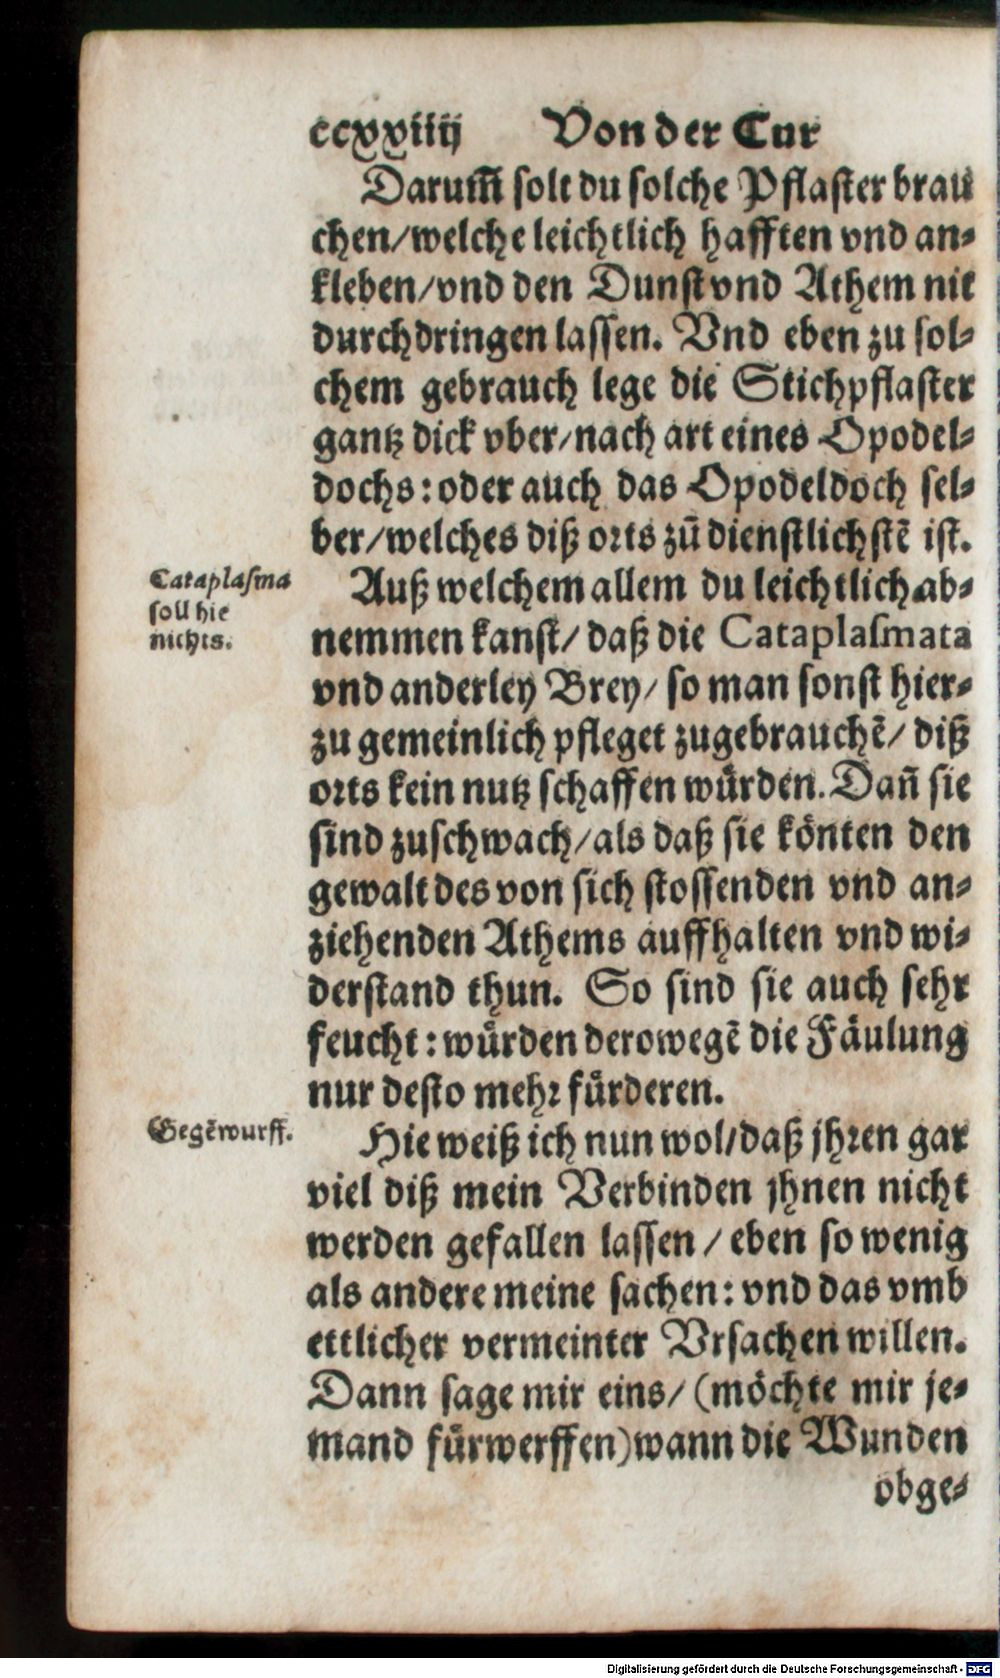 ccxxiiij Von der Cur
Darum̃ solt du solche Pflaster brau
chen/welche leichtlich hafften vnd an-
kleben/vnd den Dunst vnd Athem nit
durchdringen lassen. Vnd eben zu sol-
chem gebrauch lege die Stichpflaster
gantz dick vber/nach art eines Opodel-
dochs: oder auch das Opodeldoch sel-
ber/welches diß orts zů dienstlichstẽ ist.
Cataplasma
soll hie
nichts.
Auß welchem allem du leichtlich ab-
nemmen kanst/ daß die Cataplasmata
vnd anderley Brey/ so man sonst hier-
zu gemeinlich pfleget zugebrauchẽ/ diß
orts kein nutz schaffen wůrden. Dañ sie
sind zuschwach/als daß sie kőnten den
gewalt des von sich stossenden vnd an-
ziehenden Athems auffhalten vnd wi-
derstand thun. So sind sie auch sehr
feucht: wůrden derowegẽ die Fäulung
nur desto mehr fůrderen.
Gegẽwurff.
Hie weiß ich nun wol/daß jhren gar
viel diß mein Verbinden jhnen nicht
werden gefallen lassen / eben so wenig
als andere meine sachen: vnd das vmb
ettlicher vermeinter Vrsachen willen.
Dann sage mir eins/ (mőchte mir je-
mand fůrwerffen) wann die Wunden
obge-
Digitalisierung gefördert durch die Deutsche Forschungsgemeinschaft - DFG